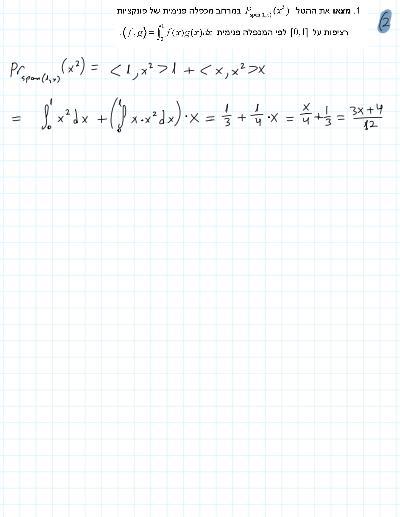 1. מצאו את ההטל P_{span(1,x)}(x²) במרחב מכפלה פנימית של פונקציות
רציפות על [0,1] לפי המכפלה פנימית (f,g)=∫₀¹ f(x)g(x)dx.
2
Pr_{span(1,x)}(x²) = <1,x²>1 + <x,x²>x
= ∫₀¹ x²dx + (∫₀¹ x·x²dx)·x = 1/3 + 1/4·x = x/4 + 1/3 = 3x+4/12